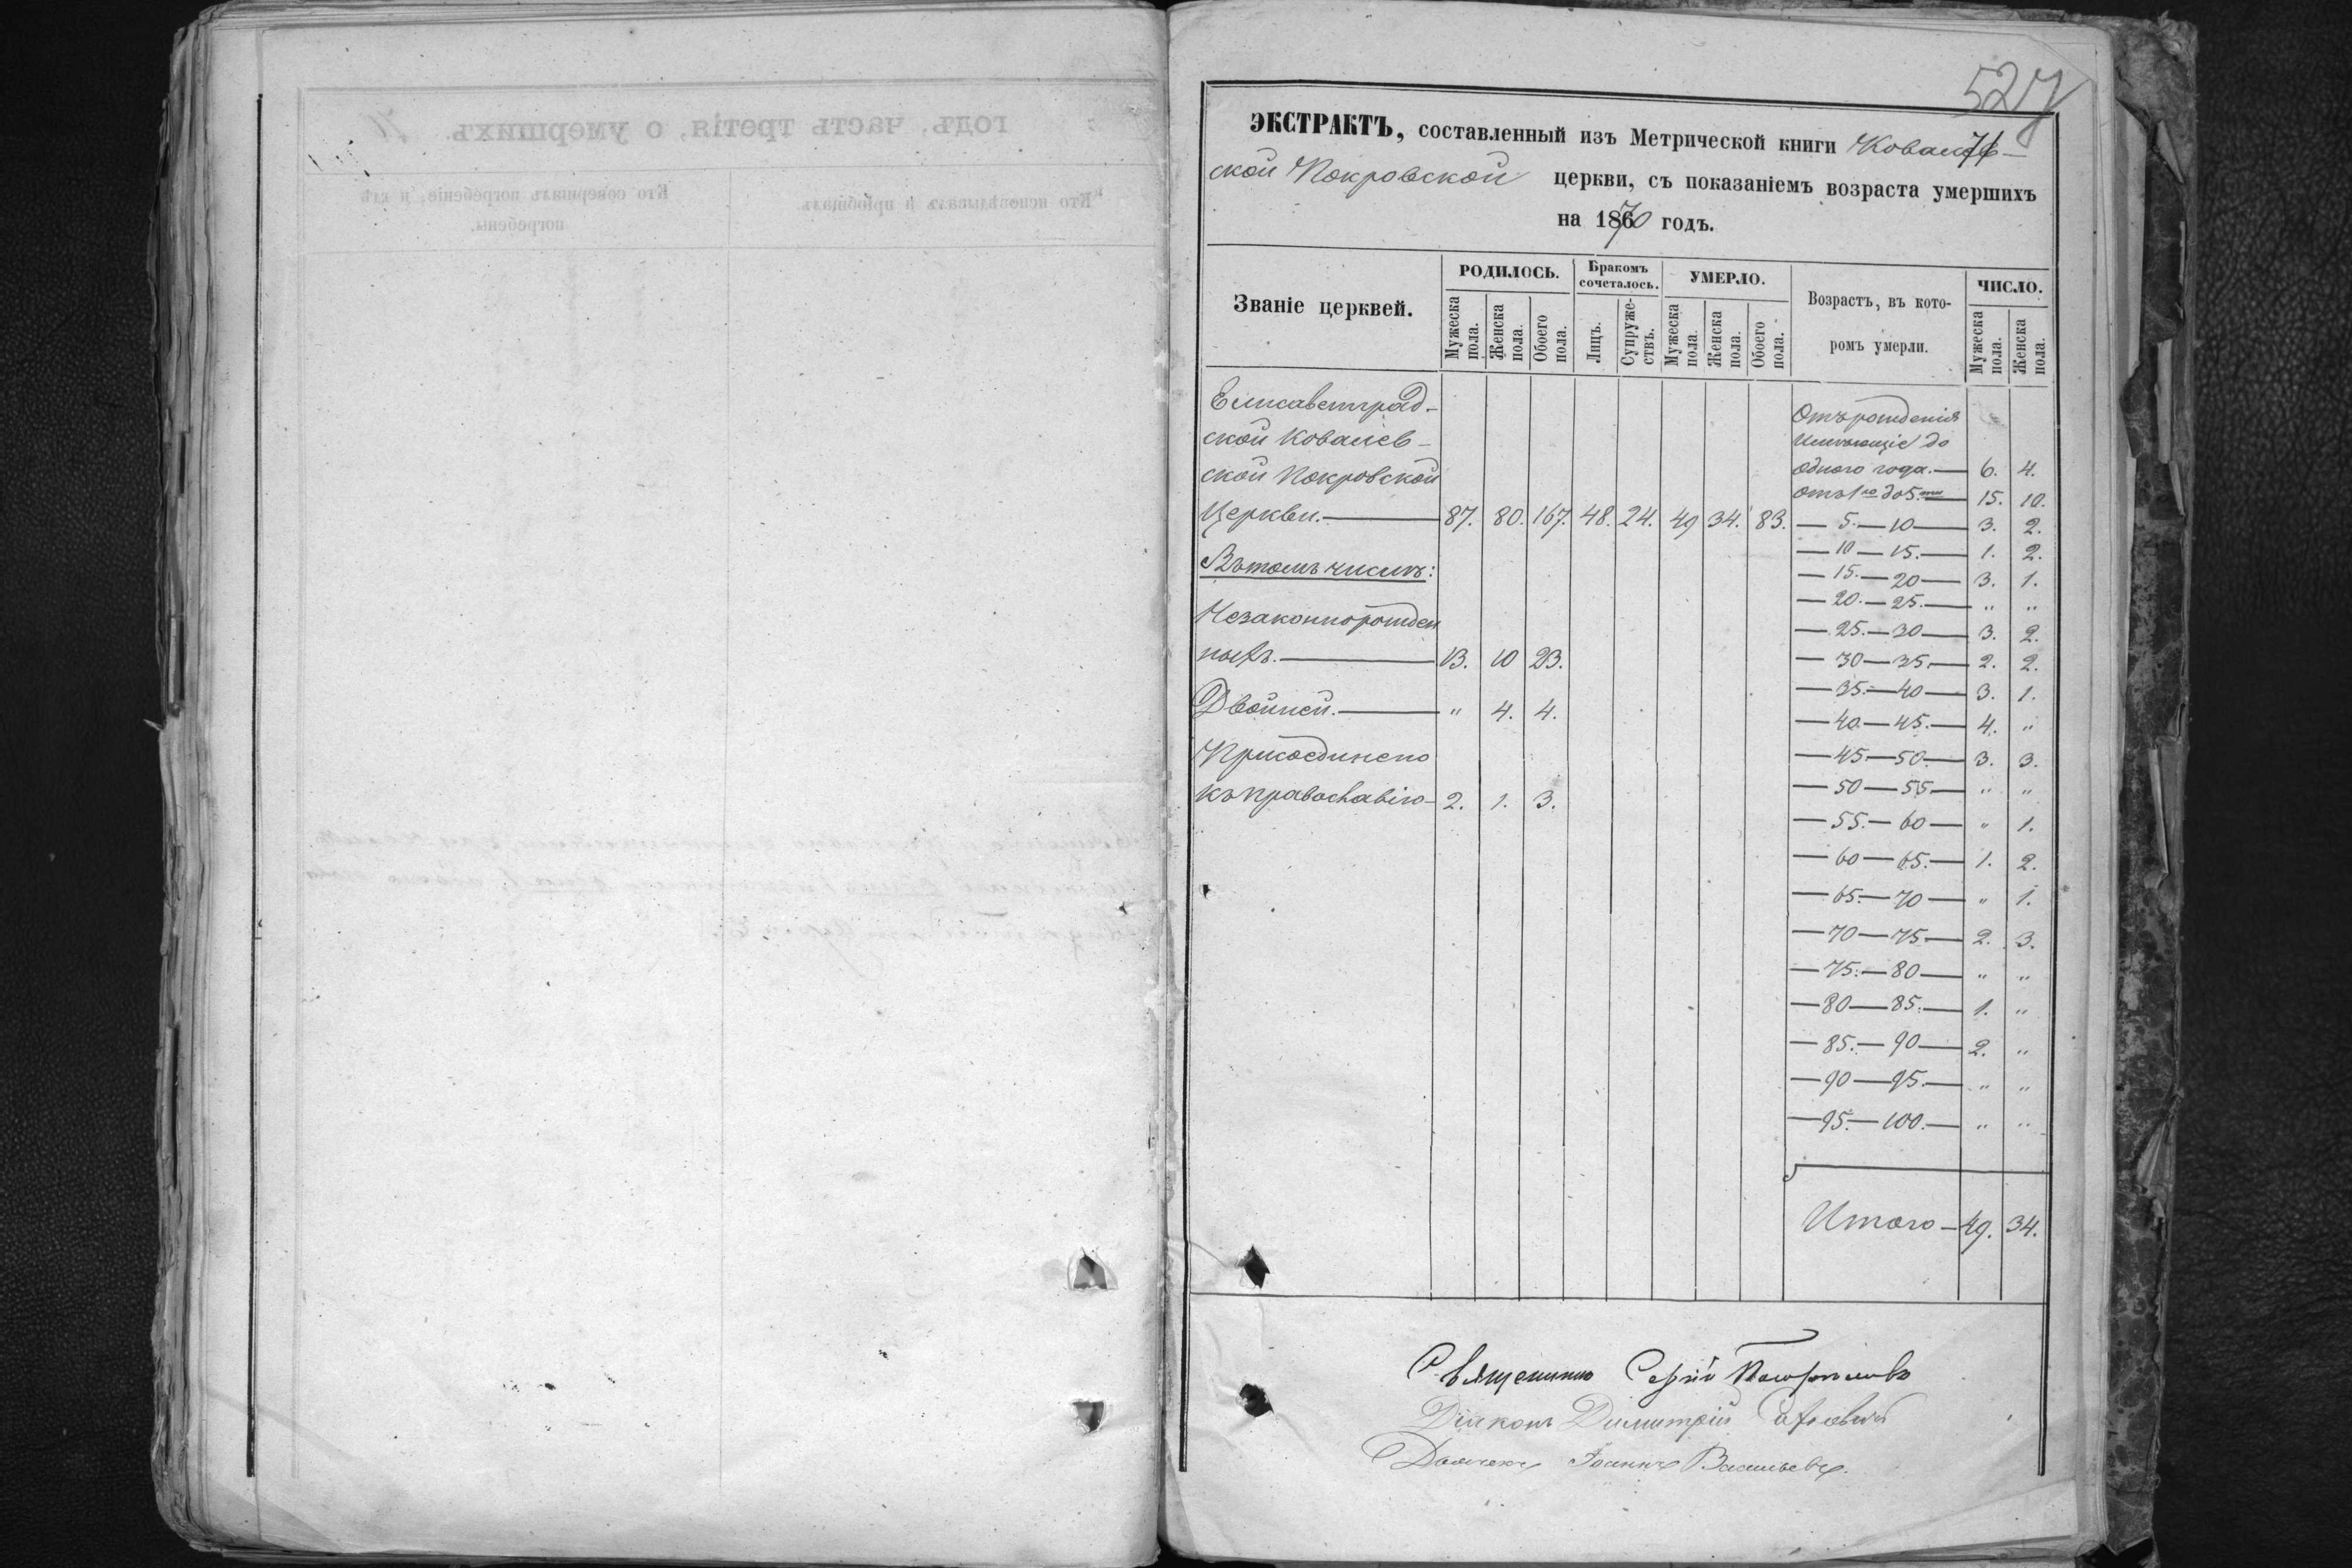 527
ЭКСТРАКТЪ, составленный изъ Метрической книги Ковалев-
71
ской Покровской церкви, съ показаніемъ возраста умершихъ
на 1870 годъ.
Званіе церквей. РОДИЛОСЬ. Бракомъ сочеталось. УМЕРЛО. Возрастъ, въ кото-ромъ умерли. ЧИСЛО.
Мужеска пола. Женска пола. Обоего пола. Лицъ. Супруже-ствъ. Мужеска пола. Женска пола. Обоего пола. Мужеска пола. Женска пола.
Елисаветград-
ской Ковалев-
ской Покровской
Церкви. — 87. 80. 167. 48. 24. 49 34. 83.
Въ томъ числѣ:
Незаконнорожден
ныхъ. — 13. 10 23.
Двойней. — " 4. 4.
Присоединено
къ православію — 2. 1. 3.
Отъ рожденія
до
одного года. — 6. 4.
отъ 1го до 5.ти — 15. 10.
— 5. — 10 — 3. 2.
— 10 — 15. — 1. 2.
— 15. — 20 — 3. 1.
— 20. — 25. — " "
— 25. — 30 — 3. 2.
— 30 — 35. — 2. 2.
— 35. — 40 — 3. 1.
— 40. — 45. — 4. "
— 45. — 50. — 3. 3.
— 50 — 55 — " "
— 55. — 60 — " 1.
— 60 — 65. — 1. 2.
— 65. — 70 — " 1.
— 70 — 75 — 2. 3.
— 75. — 80 — " "
— 80 — 85. — 1. "
— 85. — 90 — 2. "
— 90 — 95. — " "
— 95. — 100. — " "
Итого — 49. 34.
Священникъ Сергій
Діаконъ Димитрій
Дьячекъ Іоаннъ Васильевъ.
годъ, часть третія, о умершихъ.
Кто исповѣдывалъ и пріобщалъ.
Кто совершалъ погребеніе, и гдѣ
погребены.